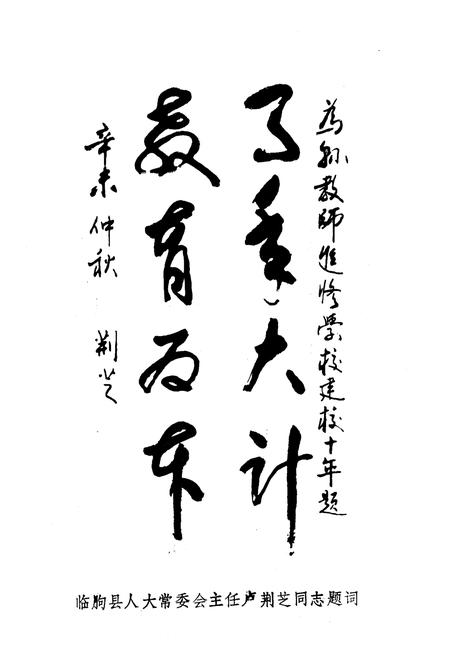 為縣教師進修學校建校十年題
百年大计
教育为本
辛未仲秋 荆芝
临朐县人大常委会主任卢荆芝同志题词